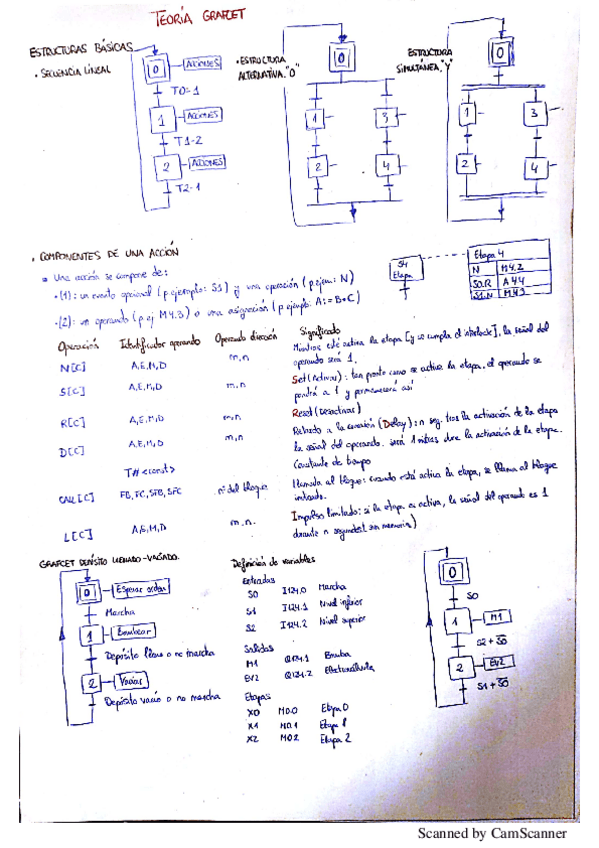 TEORÍA GRAFCET
ESTRUCTURAS BÁSICAS
• SECUENCIA LINEAL
0
ACCIONES
T0-1
1
ACCIONES
T1-2
2
ACCIONES
T2-1
• ESTRUCTURA
ALTERNATIVA "O"
0
1
3
2
4
ESTRUCTURA
SIMULTÁNEA "Y"
0
1
3
2
4
• COMPONENTES DE UNA ACCIÓN
Una acción se compone de:
•(1): un evento opcional (p.ejemplo: S1) y una operación (p.ejem: N)
•(2): un operando (p.ej M4.3) o una asignación (p.ejemplo: A:=B+C)
S4
Etapa
Etapa 4
N M4.2
S0.R A 4.4
S1.N M4.3
Operación Identificador operando Operando dirección Significado
N[C] A,E,M,D m.n Mientras esté activa la etapa [y se cumpla el interlock], la señal del
operando será 1.
S[C] A,E,M,D m.n Set (Activar): tan pronto como se activa la etapa, el operando se
pondrá a 1 y permanecerá así
R[C] A,E,M,D m.n Reset (Desactivar)
D[C] A,E,M,D m.n Retardo a la conexión (Delay): n seg. tras la activación de la etapa
la señal del operando. será 1 mientras dure la activación de la etapa.
T#<const> Constante de tiempo
CALL[C] FB, FC, SFB, SFC nº del bloque Llamada al bloque: cuando está activa la etapa, se llama al bloque
indicado.
L[C] A,E,M,D m.n. Impulso limitado: si la etapa es activa, la señal del operando es 1
durante n segundos( sin memoria)
GRAFCET DEPÓSITO LLENADO-VACIADO.
0
Esperar orden
Marcha
1
Bombear
Depósito lleno o no marcha
2
Vaciar
Depósito vacío o no marcha
Definición de variables
Entradas
S0 I124.0 Marcha
S1 I124.1 Nivel inferior
S2 I124.2 Nivel superior
Salidas
M1 Q124.1 Bomba
EV2 Q124.2 Electroválvula
Etapas
X0 M0.0 Etapa 0
X1 M0.1 Etapa 1
X2 M0.2 Etapa 2
0
S0
1
M1
S2 + S̅0̅
2
EV2
S1 + S̅0̅
Scanned by CamScanner